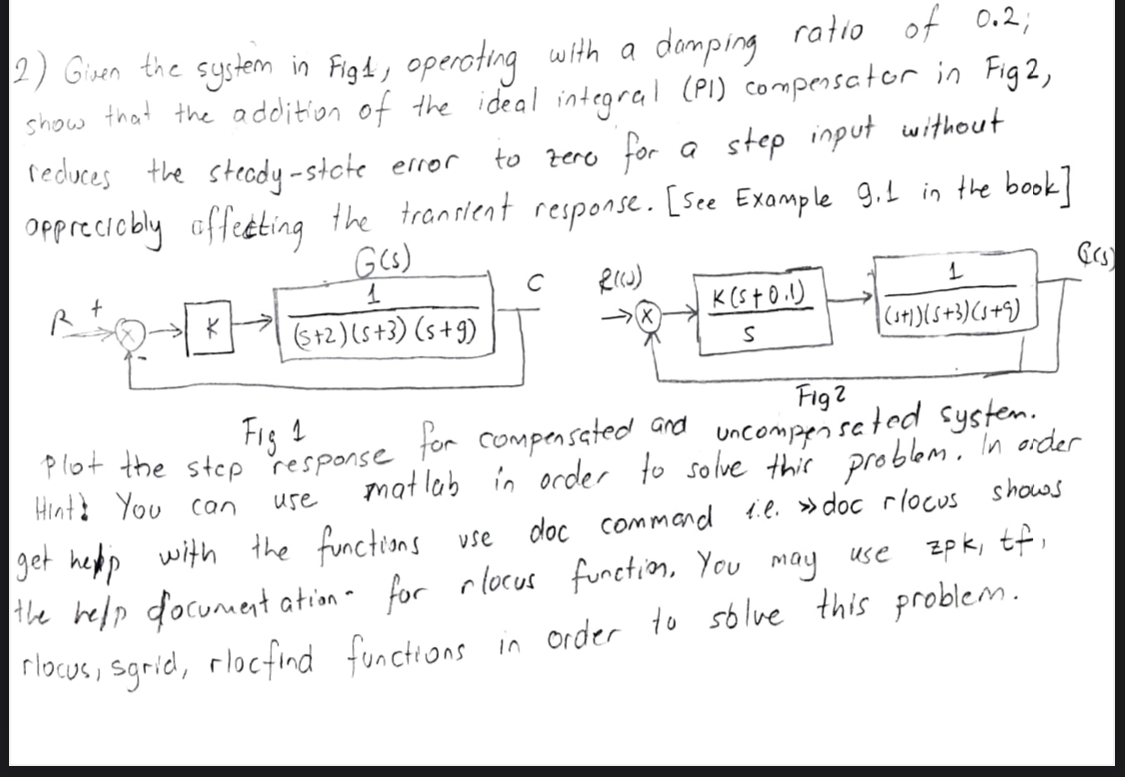 2) Given the system in Fig1, operating with a damping ratio of 0.2;
show that the addition of the ideal integral (PI) compensator in Fig 2,
reduces the steady-state error to zero for a step input without
appreciably affecting the transient response. [See Example 9.1 in the book]
G(s)
R + X - K 1 / (s+2)(s+3)(s+9) C
R(s) X K(s+0.1) / s 1 / (s+1)(s+3)(s+9) C(s)
Fig 1
Fig 2
Plot the step response for compensated and uncompensated system.
Hint: You can use matlab in order to solve this problem. In order
get help with the functions use doc command i.e. >> doc rlocus shows
the help documentation for rlocus function. You may use zpk, tf,
rlocus, sgrid, rlocfind functions in order to solve this problem.